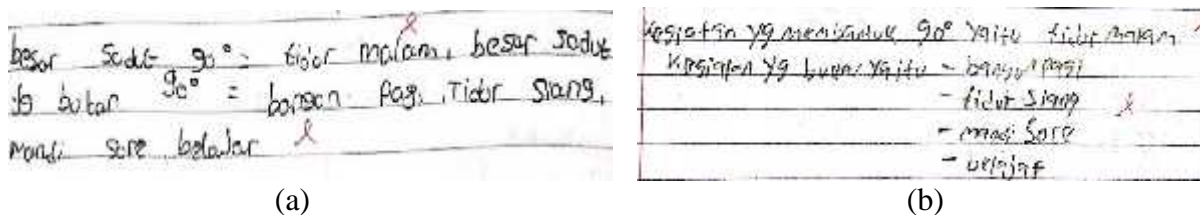 besar Sudut 90° = tidur malam, besar Sudut
yg bukan 90° = bangun Pagi, Tidur Siang,
mandi sore belajar
(a)
Kegiatan yg membentuk 90° Yaitu tidur malam
Kegiatan yg bukan Yaitu - bangun pagi
- tidur Siang
- mandi Sore
- belajar
(b)